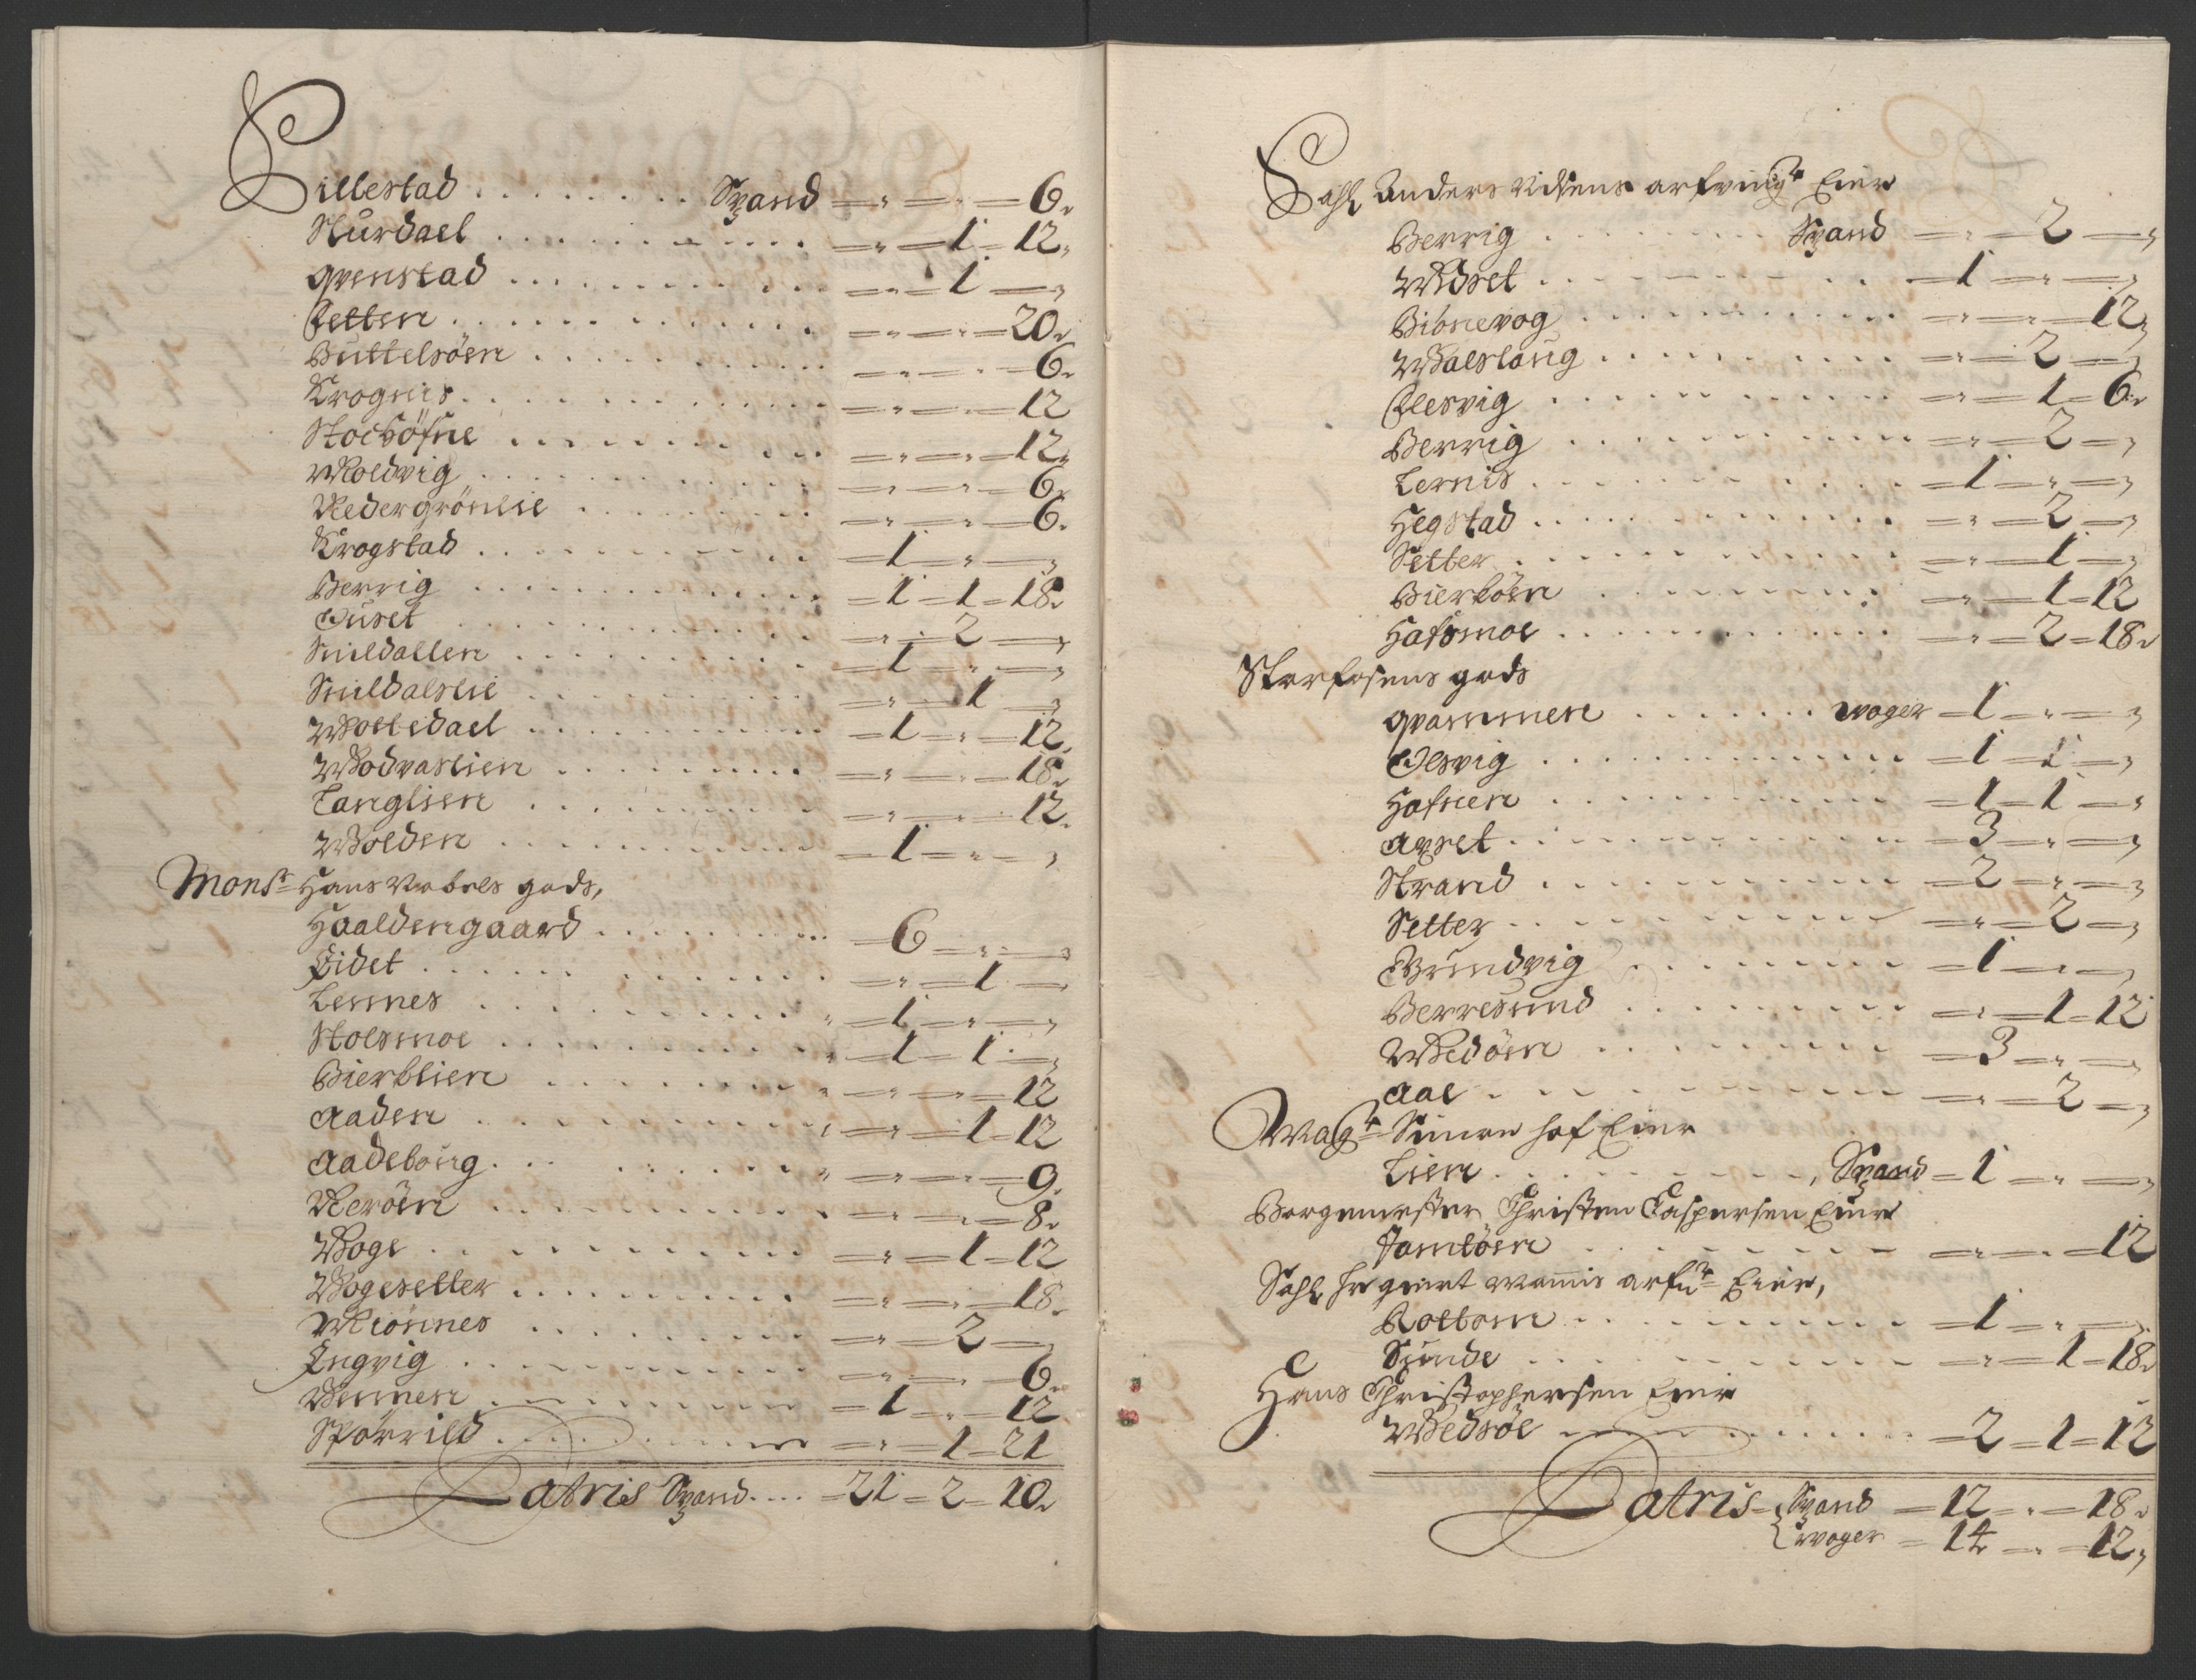 Lillestad . . . . . . . . Spand — „ — „ — 6 „
Sturdael . . . . . . . . . — „ — 1 — 12 „
Qvenstad . . . . . . . . . — „ — 1 — „
Fetten . . . . . . . . . — „ — „ — 20 „
Buttelsöen . . . . . . . . . — „ — „ — 6 „
Krognis . . . . . . . . . — „ — „ — 12
Stochöfne . . . . . . . . . — „ — „ — 12 „
Woldvig . . . . . . . . . — „ — „ — 6 „
Nedergrönlie . . . . . . . . . — „ — „ — 6 „
Krogstad . . . . . . . . . — 1 — „ — „
Berrig . . . . . . . . . — 1 — 1 — 18 „
Ouset . . . . . . . . . — „ — 2 — „
Snildallen . . . . . . . . . — 1 — „ — „
Snildalslie . . . . . . . . . — „ — 1 — „
Wottedael . . . . . . . . . — 1 — „ — 12 „
Wodvaslien . . . . . . . . . — „ — „ — 18 „
Langlien . . . . . . . . . — „ — „ — 12 „
Wolden . . . . . . . . . — 1 — „ — „
Monsr Hans gods,
Haaldengaard . . . . . . . . . — 6 — „ — „
Eidet . . . . . . . . . — „ — 1 —
Lennes . . . . . . . . . — 1 — „ — „
Stolsmoe . . . . . . . . . — 1 — 1 — „
Bierklien . . . . . . . . . — „ — „ — 12
Aaden . . . . . . . . . — „ — 1 — 12
Aadeboug . . . . . . . . . — „ — „ — 9 „
Neröen . . . . . . . . . — „ — „ — 8 „
Woge . . . . . . . . . — „ — 1 — 12
Wogesetter . . . . . . . . . — „ — „ — 18 „
Miönnes . . . . . . . . . — „ — 2 — „
Ingvig . . . . . . . . . — „ — „ — 6 „
Wennen . . . . . . . . . — 1 — „ — 12
Spörrild . . . . . . . . . — „ — 1 — 21
Latris Spand . . . . — 21 — 2 — 10 „
Sahl Anders arfving Eier
Berrig . . . . . . . . Spand — „ — 2 — „
Udset . . . . . . . . . — 1 — „ — „
Bibnevog . . . . . . . . . — „ — „ — 12 „
Walslaug . . . . . . . . . — „ — 2 — „
Flesvig . . . . . . . . . — „ — 1 — 6 „
Berrig . . . . . . . . . — „ — 2 — „
Lernis . . . . . . . . . — 1 — „ — „
Hegstad . . . . . . . . . — „ — 2 — „
Setter . . . . . . . . . — „ — 1 — „
Bierköen . . . . . . . . . — „ — 1 — 12
Hafsmoe . . . . . . . . . — „ — 2 — 18 „
Storfosens gods
Qvammen . . . . . . . woger — 1 — „ — „
Olsvig . . . . . . . . . — 1 — 1 — „
Hafnen . . . . . . . . . — 1 — 1 — „
Axset . . . . . . . . . — 3 — „ — „
Strand . . . . . . . . . — 2 — „ — „
Setter . . . . . . . . . — „ — 2 — „
Gründvig . . . . . . . . . — 1 — „ — „
Berresund . . . . . . . . . — „ — 1 — 12
Wedöen . . . . . . . . . — 3 — „ — „
Aal . . . . . . . . . — „ — 2 — „
Magr Simon Hof Eier
Lien . . . . . . . . . Spand — 1 — „ — „
Borgemester Christen Caspersen Eier
Tamsöen . . . . . . . . . — „ — „ — 12
Sahl Hr arfu Eier,
Rottem . . . . . . . . . — 1 — „ — „
Sunde . . . . . . . . . — „ — 1 — 18 „
Hans Christophersen Eier
Wedsöe . . . . . . . . . — 2 — 1 — 12
Latris — { Spand — 12 — „ — 18 „
woger — 14 — „ — 12 „